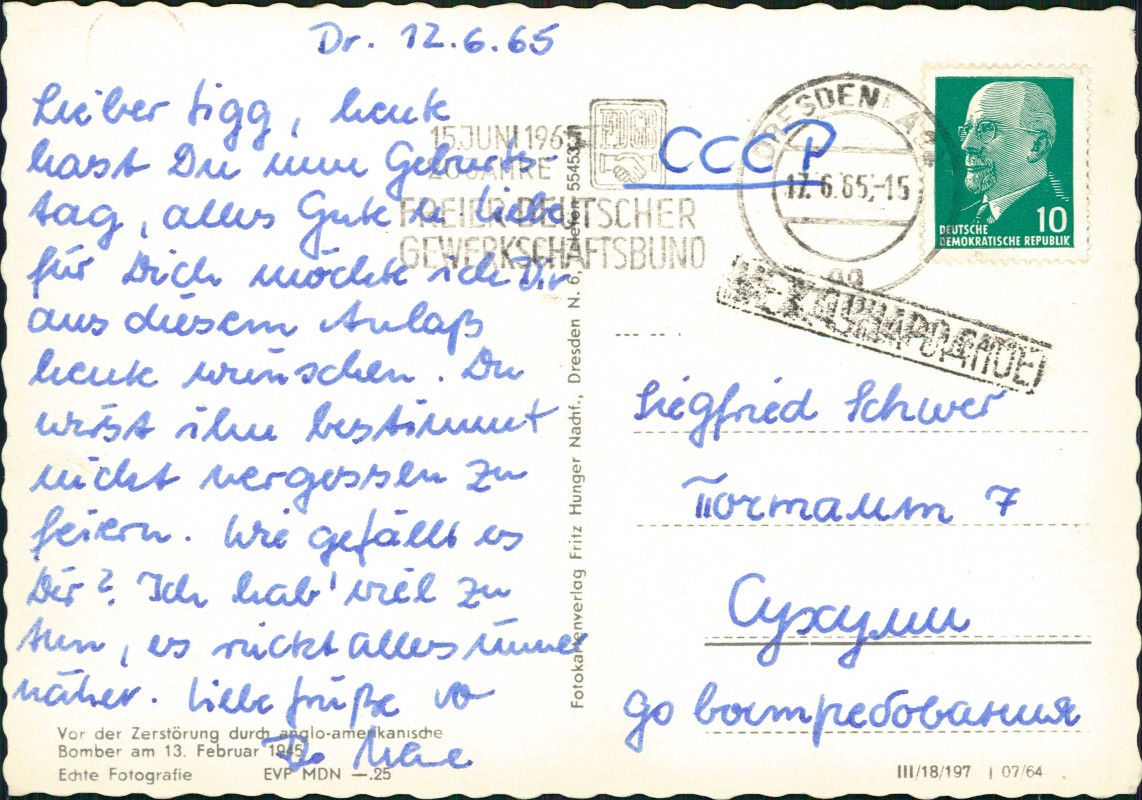 Dr. 12.6.65
Lieber Sigg, heute
hast Du nun Geburts-
tag, alles Gute u. Liebe
für Dich möchte ich Dir
aus diesem Anlaß
heute wünschen. Du
wirst ihn bestimmt
nicht vergessen zu
feiern. Wie gefällt es
Dir? Ich hab' viel zu
tun, es rückt alles immer
näher. Liebe Grüße
Vor der Zerstörung durch anglo-amerikanische
Bomber am 13. Februar 1945
Echte Fotografie EVP MDN —.25
Fotokartenverlag Fritz Hunger Nachf., Dresden N. 6, Telefon 55453
15. JUNI 1965
20 JAHRE
FDGB
FREIER DEUTSCHER
GEWERKSCHAFTSBUND
DRESDEN
17.6.65,-15
DEUTSCHE
DEMOKRATISCHE REPUBLIK
10
СССР
Siegfried Schwer
Почтамт 7
Сухуми
до востребования
III/18/197 07/64